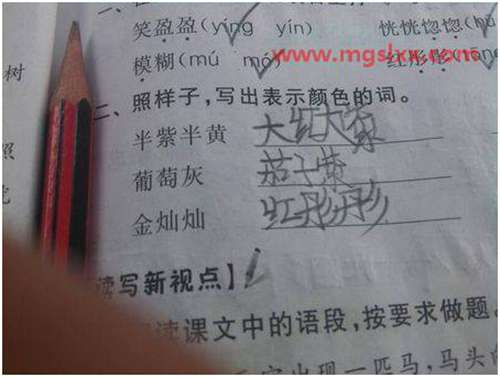 笑盈盈(yíng yín) 恍恍惚惚(h
模糊(mú mó) 红彤彤(tóng
树
二、照样子,写出表示颜色的词。
半紫半黄 大红大紫
葡萄灰 茄子紫
金灿灿 红彤彤
照
读写新视点】
读课文中的语段,按要求做题。
出现一匹马,马头